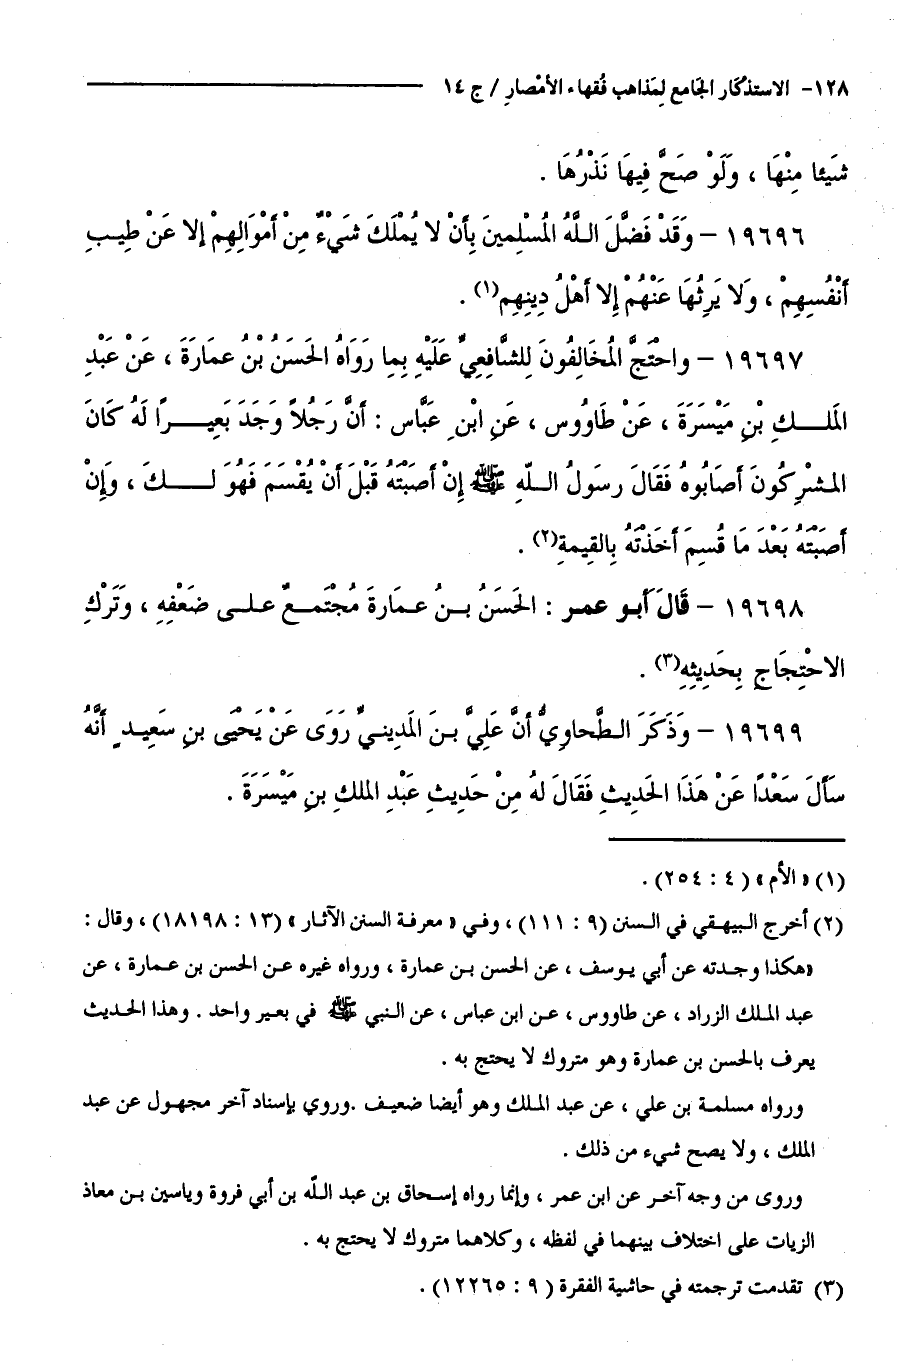 ١٢٨- الاستذكار الجامع لمذاهب فُقهاء الأمْصارِ / ج ١٤
شَيئا مِنْهَا ، وَلَوْ صَحَّ فِيهَا نَذْرُهَا .
١٩٦٩٦ – وَقَدْ فَضَّلَ اللَّهُ المُسْلِمِينَ بِأَنْ لا يُمْلَكَ شَيْءٌ مِنْ أَمْوَالِهِمْ إلا عَنْ طِيبِ
أَنْفُسِهِمْ ، وَلا يَرِثُهَا عَنْهُمْ إِلا أَهْلُ دِينِهِم(١) .
١٩٦٩٧ – واحْتَجَّ المُخَالِفُونَ لِلشَّافِعِيِّ عَلَيْهِ بِما رَوَاهُ الحَسَنُ بْنُ عمَارَةَ ، عَنْ عَبْدِ
المَلكِ بْنِ مَيْسَرَةَ ، عَنْ طَاوُوس ، عَنِ ابْنِ عَبَّاس : أَنَّ رَجُلاً وَجَدَ بَعِيرًا لَهُ كَانَ
المشْرِكُونَ أَصَابُوهُ فَقَالَ رَسولُ اللّهِ ﷺ إِنْ أَصَبْتَهُ قَبْلَ أَنْ يُقْسَمَ فَهُوَ لَكَ ، وَإِنْ
أَصَبْتَهُ بَعْدَ مَا قُسِمَ أَخَذْتَهُ بِالقِيمةِ(٢) .
١٩٦٩٨ – قَالَ أَبو عمر : الحَسَنُ بنُ عمَارةَ مُجْتَمعٌ على ضَعْفِهِ ، وَتَرْكِ
الاحْتِجَاجِ بِحَدِيثِهِ(٣) .
١٩٦٩٩ – وَذَكَرَ الطَّحاوِيُّ أَنَّ عَلِيَّ بنَ المَدِينيِّ رَوَى عَنْ يَحْيَى بنِ سَعِيدٍ أَنَّهُ
سَأَلَ سَعْدًا عَنْ هَذَا الحَدِيثِ فَقَالَ لهُ مِنْ حَدِيثِ عَبْدِ الملكِ بنِ مَيْسَرَةَ .
(١) « الأم » ( ٤ : ٢٥٤) .
(٢) أخرج البيهقي في السنن (٩ : ١١١) ، وفي « معرفة السنن الآثار » (١٣ : ١٨١٩٨) ، وقال :
«هكذا وجدته عن أبي يوسف ، عن الحسن بن عمارة ، ورواه غيره عن الحسن بن عمارة ، عن
عبد الملك الزراد ، عن طاووس ، عن ابن عباس ، عن النبي ﷺ في بعير واحد . وهذا الحديث
يعرف بالحسن بن عمارة وهو متروك لا يحتج به .
ورواه مسلمة بن علي ، عن عبد الملك وهو أيضا ضعيف .وروي بإسناد آخر مجهول عن عبد
الملك ، ولا يصح شيء من ذلك .
وروى من وجه آخر عن ابن عمر ، وإنما رواه إسحاق بن عبد اللّه بن أبي فروة وياسين بن معاذ
الزيات على اختلاف بينهما في لفظه ، وكلاهما متروك لا يحتج به .
(٣) تقدمت ترجمته في حاشية الفقرة ( ٩ : ١٢٢٦٥) .